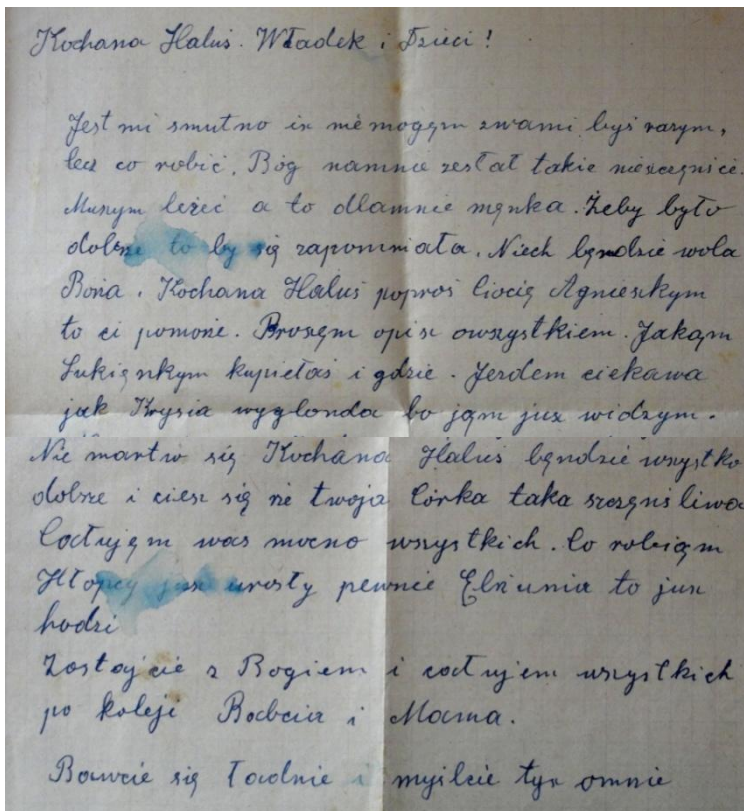 Kochana Haluś. Władek i Dzieci!
Jest mi smutno iż niemogęm zwami byś razym,
lecz co robić. Bóg namnie zesłał takie nieszczęńście.
Muszym leżeć a to dlamnie męnka. Żeby było
dobrze to by się zapomniała. Niech bęndzie wola
Boża. Kochana Haluś poproś Ciocię Agnieszkym
to ci pomoże. Proszęm opisz owszystkiem. Jakąm
Sukięnkym kupiełaś i gdzie. Jezdem ciekawa
jak Krysia wyglonda bo jąm już widzym.
Nie martw się Kochana Haluś bęndzie wszystko
dobrze i ciesz się że twoja Córka taka szczęnśliwa
Całujęm was mocno wszystkich. Co robiąm
Hłopcy już urosły pewnie Elżunia to już
hodzi
Zostajcie z Bogiem i całujem wszystkich
po koleji Babcia i Mama.
Bawcie się ładnie i myślcie tyż omnie